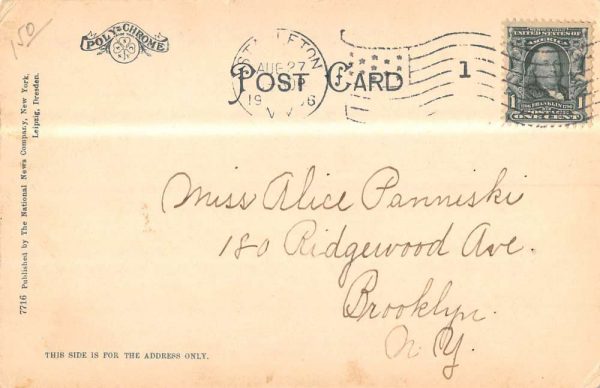 150
POLY-CHROME
STAPLETON
AUG 27
19 06
N.Y.
POST CARD
1
UNITED STATES OF
AMERICA
1 FRANKLIN 1
POSTAGE
ONE CENT
7716 Published by The National News Company, New York,
Leipzig, Dresden.
Miss Alice Panniski
180 Ridgewood Ave.
Brooklyn.
N.Y.
THIS SIDE IS FOR THE ADDRESS ONLY.